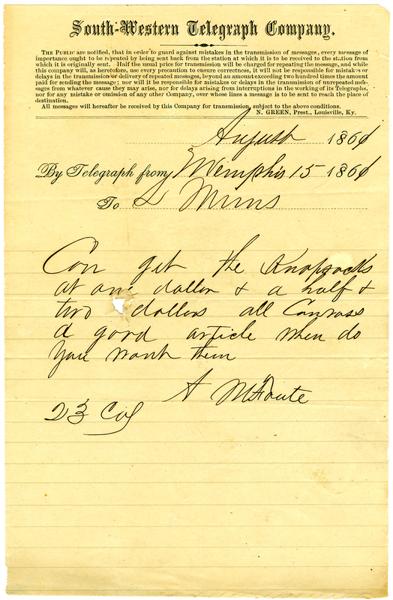 South-Western Telegraph Company.
THE PUBLIC are notified, that in order to guard against mistakes in the transmission of messages, every message of
importance ought to be repeated by being sent back from the station at which it is to be received to the station from
which it is originally sent. Half the usual price for transmission will be charged for repeating the message, and while
this company will, as heretofore, use every precaution to ensure correctness, it will not be responsible for mistakes or
delays in the transmission or delivery of repeated messages, beyond an amount exceeding two hundred times the amount
paid for sending the message; nor will it be responsible for mistakes or delays in the transmission of unrepeated mes-
sages from whatever cause they may arise, nor for delays arising from interruptions in the working of its Telegraphs,
nor for any mistake or omission of any other Company, over whose lines a message is to be sent to reach the place of
destination.
All messages will hereafter be received by this Company for transmission, subject to the above conditions.
N. GREEN, Prest., Louisville, Ky.
August 1861
By Telegraph from Memphis 15 1861
To L Mims
Can get the Knapsacks
at one dollar & a half &
two dollars all Canvass
a good article when do
you want them
A M Foute
23 Col